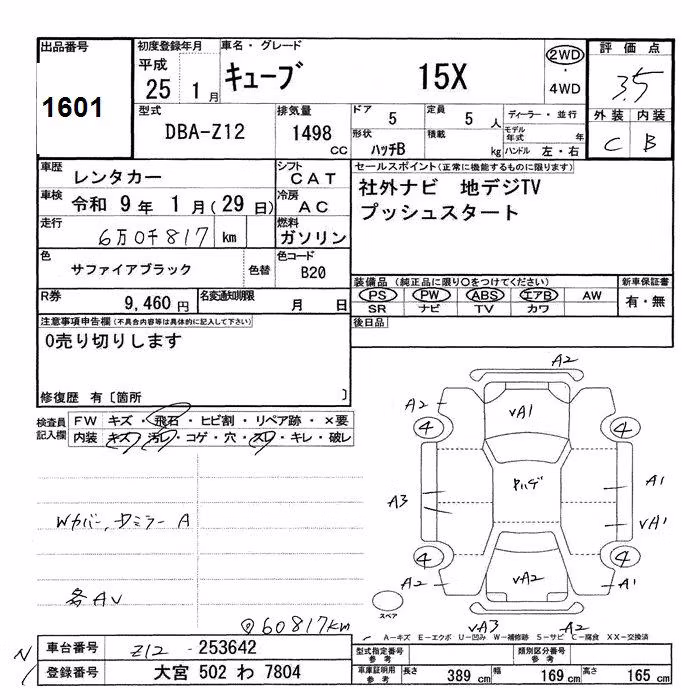 出品番号
1601
初度登録年月
平成
25 1月
車名・グレード
キューブ 15X
2WD
・
4WD
評価点
3.5
外装 内装
C B
型式
DBA-Z12
排気量
1498 CC
ドア 5
定員 5 人
形状 ハッチB
積載 kg
ディーラー・並行
モデル年式 年
ハンドル 左・右
車歴 レンタカー
シフト CAT
車検 令和 9年 1月(29日)
冷房 AC
走行 6万0千817 km
燃料 ガソリン
色 サファイアブラック 色替
色コード B20
R券 9,460円
名変通知期限 月 日
セールスポイント(正常に機能するものに限ります)
社外ナビ 地デジTV
プッシュスタート
装備品(純正品に限り○をつけてください)
新車保証書
PS PW ABS エアB AW
有・無
SR ナビ TV カワ
後日品
注意事項申告欄(不具合内容等は具体的に記入して下さい)
0売り切りします
修復歴 有〔箇所 〕
検査員記入欄
FW キズ・飛石・ヒビ割・リペア跡・×要
内装 キズ・汚レ・コゲ・穴・スレ・キレ・破レ
Wカバー、ドミラー A
各AV
◎60817km
A2
A2
VA1
4 4
A3
ヤハゲ
A1
VA1
4 4
A2
VA2
A1
スペア
VA3 A2
A-キズ E-エクボ U-凹み W-補修跡 S-サビ C-腐食 XX-交換済
N
車台番号 Z12-253642
登録番号 大宮 502 わ 7804
型式指定番号 参考
類別区分番号 参考
車庫証明用 参考
長さ 389 cm
幅 169 cm
高さ 165 cm